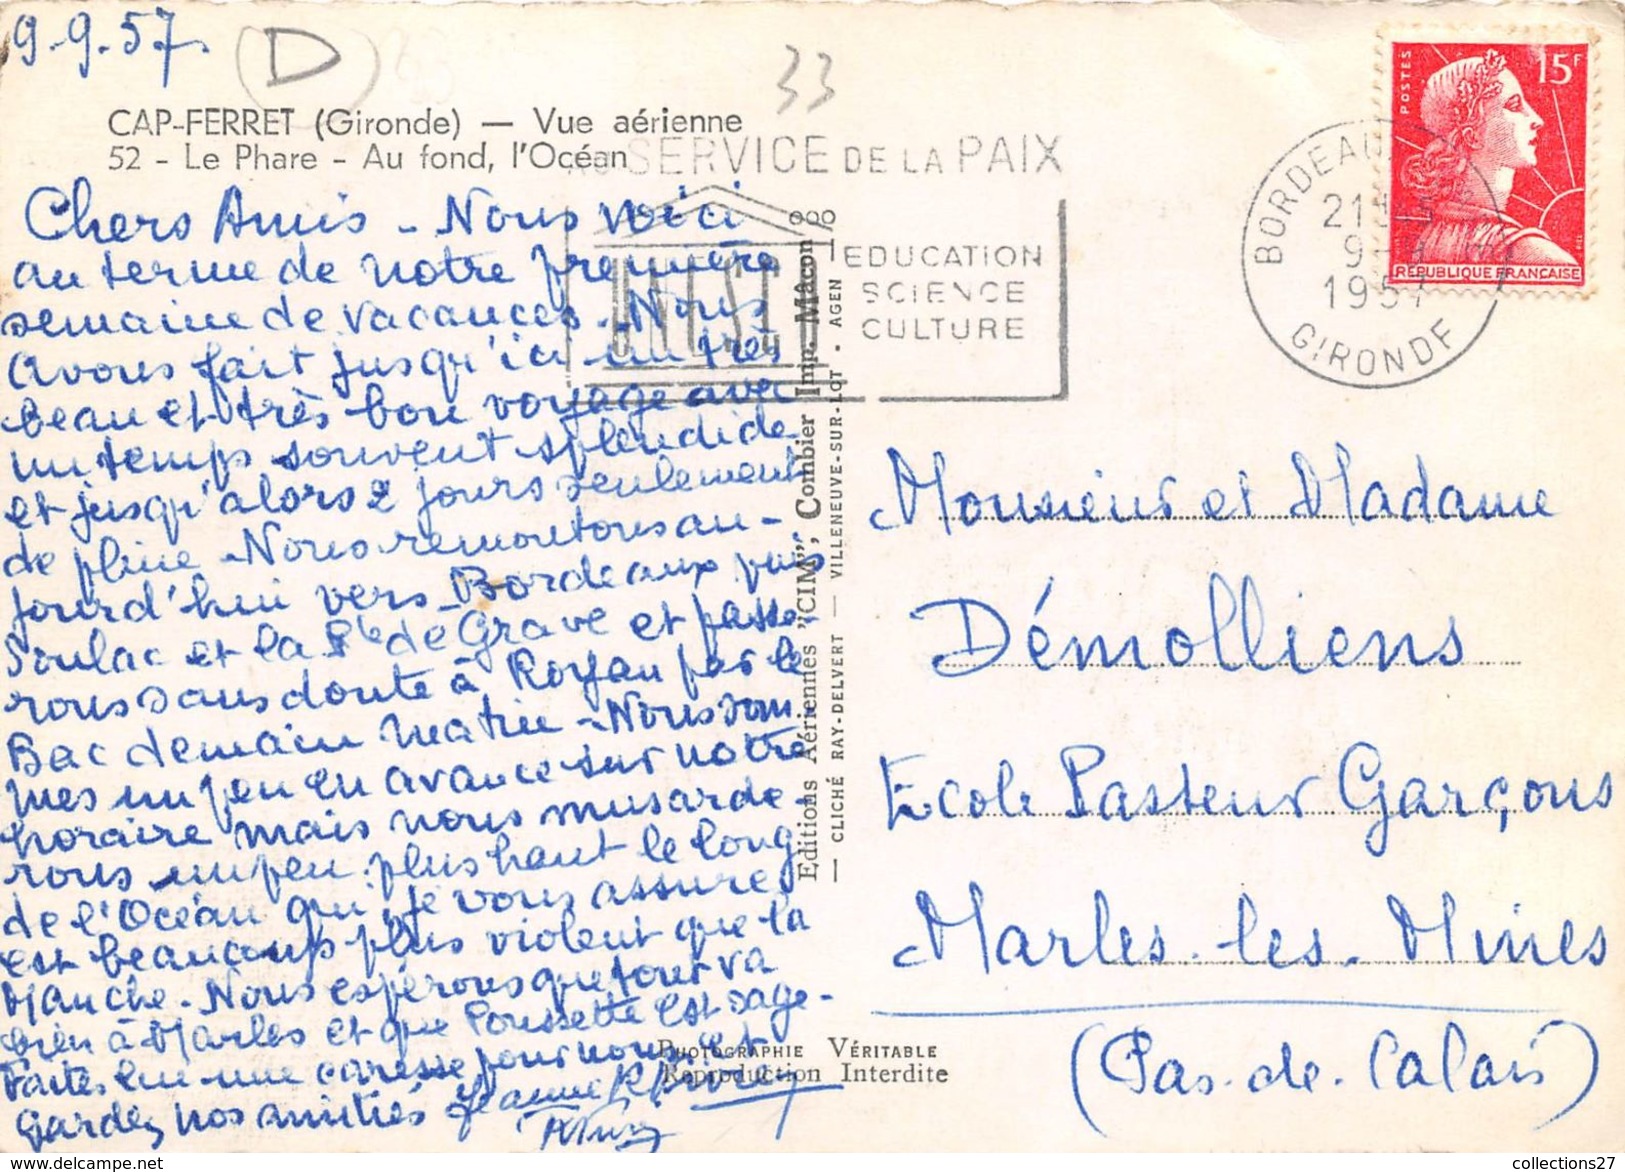 9.9.57.
D
33
CAP-FERRET (Gironde) — Vue aérienne
52 - Le Phare - Au fond, l'Océan
Chers Amis - Nous voici
au terme de notre première
semaine de vacances. Nous
avons fait jusqu'ici un très
beau et très bon voyage avec
un temps souvent splendide
et jusqu'alors 2 jours seulement
de pluie - Nous remontons au-
jourd'hui vers Bordeaux puis
Soulac et la Pte de Grave et passe-
rons sans doute à Royan par le
Bac demain matin - Nous som-
mes un peu en avance sur notre
horaire mais nous musarde-
rons un peu plus haut le long
de l'Océan qui, je vous assure,
est beaucoup plus violent que la
Manche - Nous espérons que tout va
bien à Marles et que Poussette est sage -
Faites lui une caresse pour nous et
Gardez nos amitiés
SERVICE DE LA PAIX
UNESCO
EDUCATION
SCIENCE
CULTURE
BORDEAUX
21H
9-9
1957
GIRONDE
POSTES
15F
RÉPUBLIQUE FRANÇAISE
Editions Aériennes "CIM", Combier Imp. Mâcon
— CLICHÉ RAY-DELVERT — VILLENEUVE-SUR-LOT - AGEN
Monsieur et Madame
Démolliens
Ecole Pasteur Garçons
Marles-les-Mines
(Pas-de-Calais)
PHOTOGRAPHIE VÉRITABLE
Reproduction Interdite
collections27